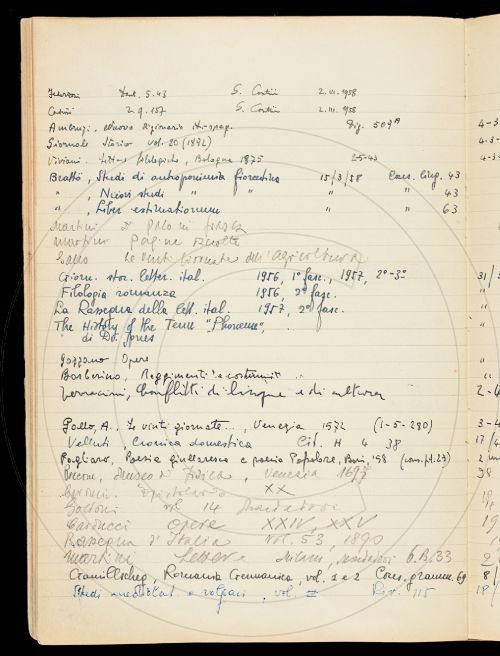 Dant. 5.43 S. Contini 2.III.1958
2.9.157 S. Contini 2.III.1958
Ambruzzi. Nuovo dizionario it.-spag. Diz. 509A 4-3-
Giornale storico vol. 20 (1892) 4-3-
Viviani. Lettere filologiche, Bologna 1875 2-5-43 4-3-
Brattö, Studi di antroponimia fiorentina 15/3/58 Cons. ling. 43
" , Nuovi studi " " " " 43
" , Liber extimationum " " 63
Martini
Martini Pagine scelte
Gallo Le venti giornate dell'agricoltura
Giorn. stor. letter. ital. 1956, 1° fasc., 1957, 2°-3° 31/3
Filologia romanza 1956, 2° fasc. "
La Rassegna della lett. ital. 1957, 2° fasc. "
The History of the Term "Phoneme", "
di D. Jones
Gozzano Opere "
Barberino, Reggimenti e costumi "
Terracini, Conflitti di lingue e di cultura 2-4
Gallo, A., Le vinti giornate..., Venezia 1572 (1-5-280) 3-4
Velluti, Cronica domestica Cit. H 4 38 17/4
Pagliaro, Poesia giullaresca e poesia popolare, Bari, 158 (cons. pt. 27) 2
Museo di Fisica, Venezia 1697
Epistolario XX
Goldoni vol. 14 Mondadori
Carducci Opere XXIV, XXV
Rassegna d'Italia vol. 53, 1890
Martini Lettere Milano, Mondadori 6.B.33 2
Gamillscheg, Romania Germanica, vol. 1 e 2 Cons. gramm. 69 8/
Studi mediolat. e volgari, vol. III Riv. 115 18/